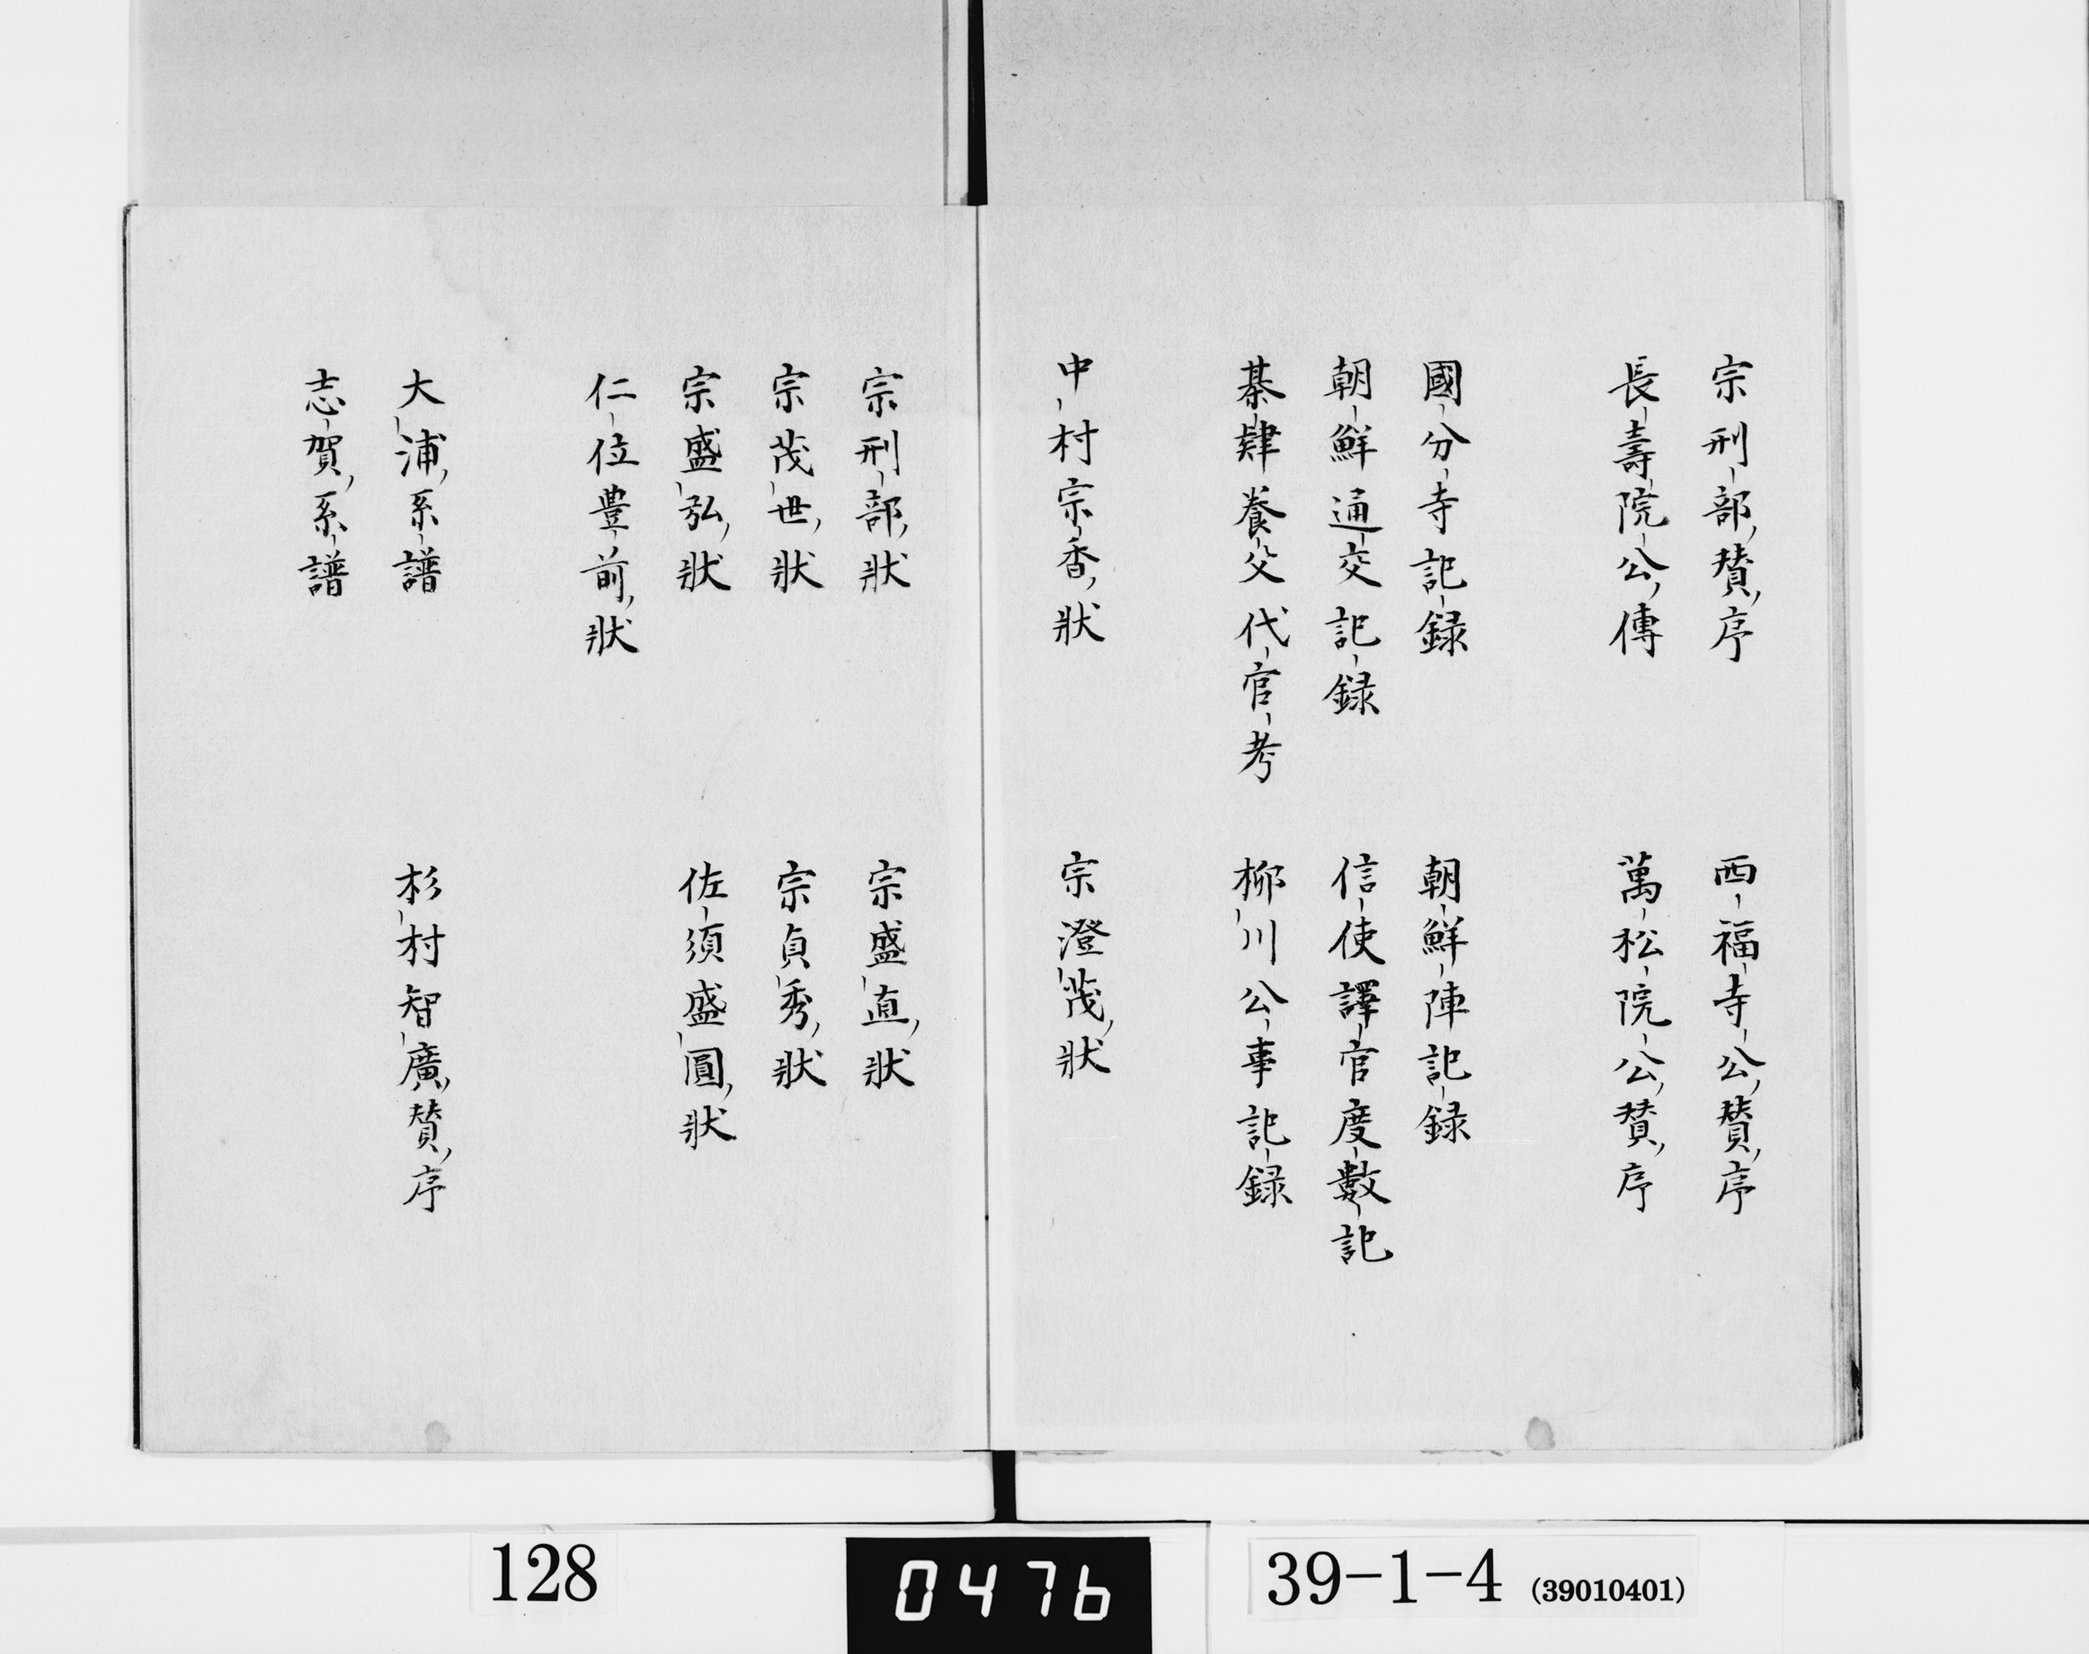 宗刑部賛序
西福寺公賛序
長壽院公傳
萬松院公賛序
國分寺記録
朝鮮陣記録
朝鮮通交記録
信使譯官度數記
綦肄養父代官考
柳川公事記録
中村宗香狀
宗澄茂狀
宗刑部狀
宗盛直狀
宗茂世狀
宗貞秀狀
宗盛弘狀
佐須盛圓狀
仁位豊前狀
大浦系譜
杉村智廣賛序
志賀系譜
128
0476
39-1-4 (39010401)